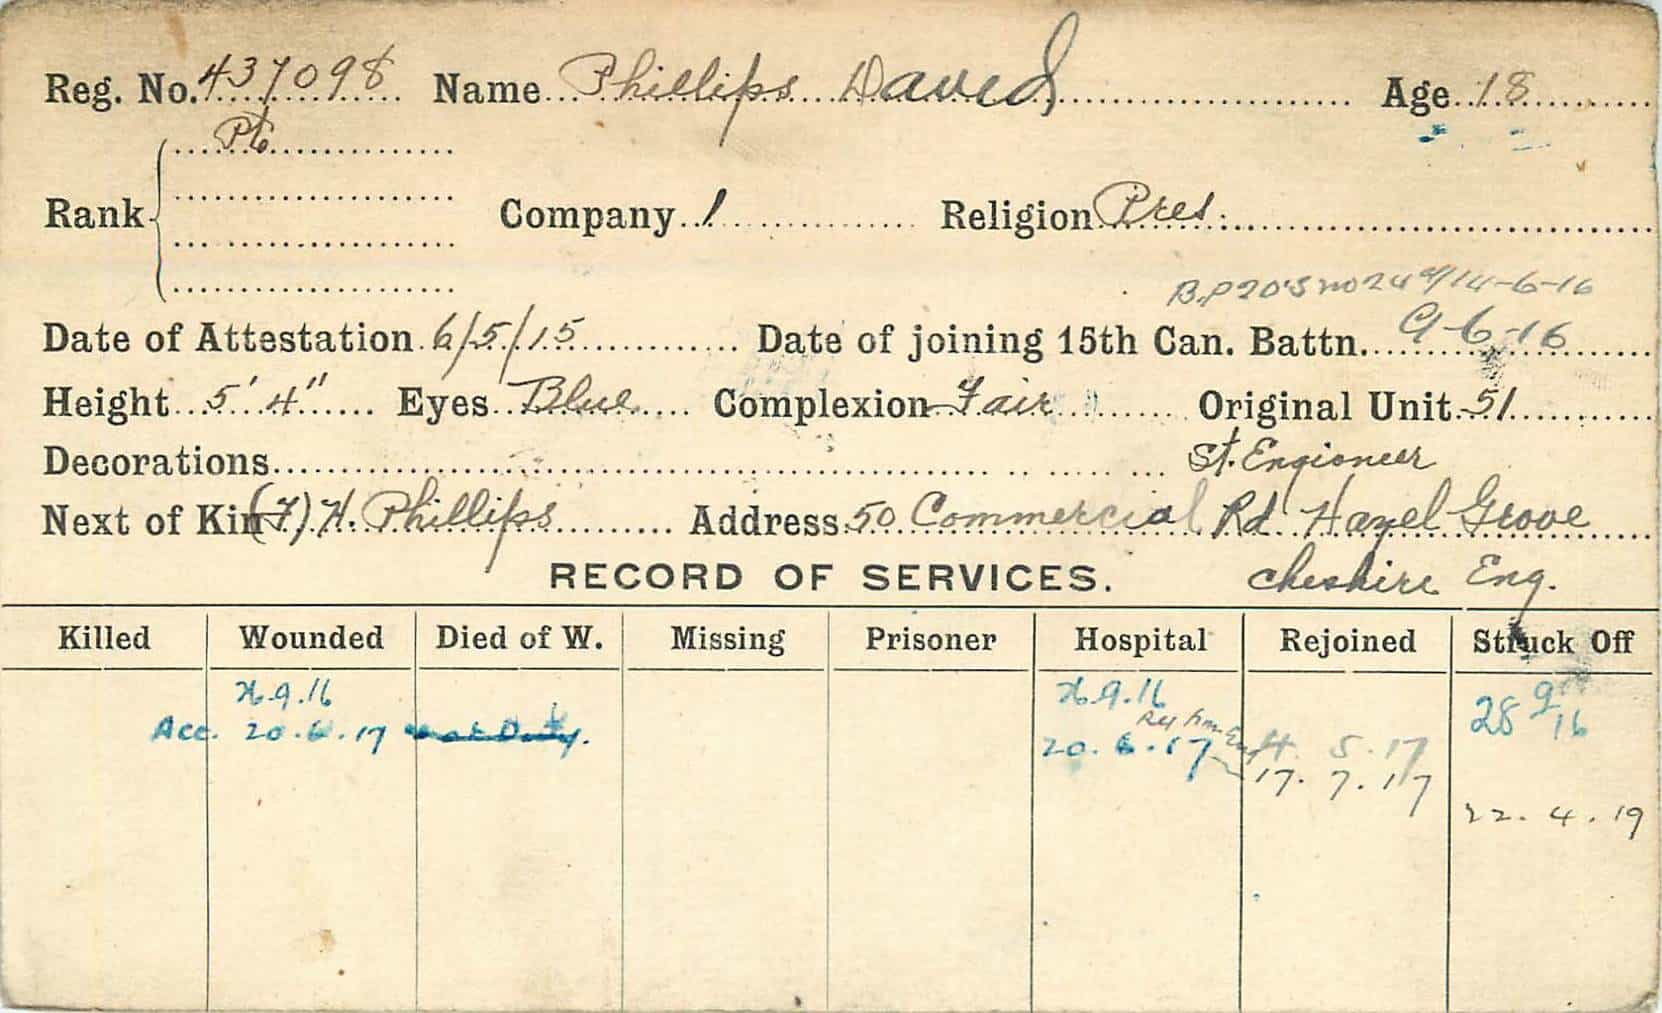 Reg. No. 437098 Name Phillips David Age 18
Pte
Rank Company 1 Religion Pres.
B.P 20's no 24 d/14-6-16
Date of Attestation 6/5/15 Date of joining 15th Can. Battn. 9-6-16
Height 5' 4" Eyes Blue Complexion Fair Original Unit 51
Decorations St. Engioneer
Next of Kin (F) H. Phillips Address 50 Commercial Rd Hazel Grove
RECORD OF SERVICES. Cheshire Eng.
Killed Wounded Died of W. Missing Prisoner Hospital Rejoined Struck Off
26.9.16 26.9.16 28 9/16
Acc. 20.6.17 at Duty. 20.6.17 4. 5. 17
17. 7. 17
22. 4. 19